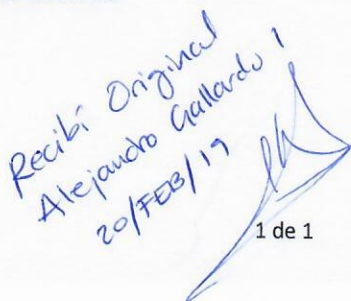 Recibí Original
Alejandro Gallardo I
20/FEB/19
1 de 1